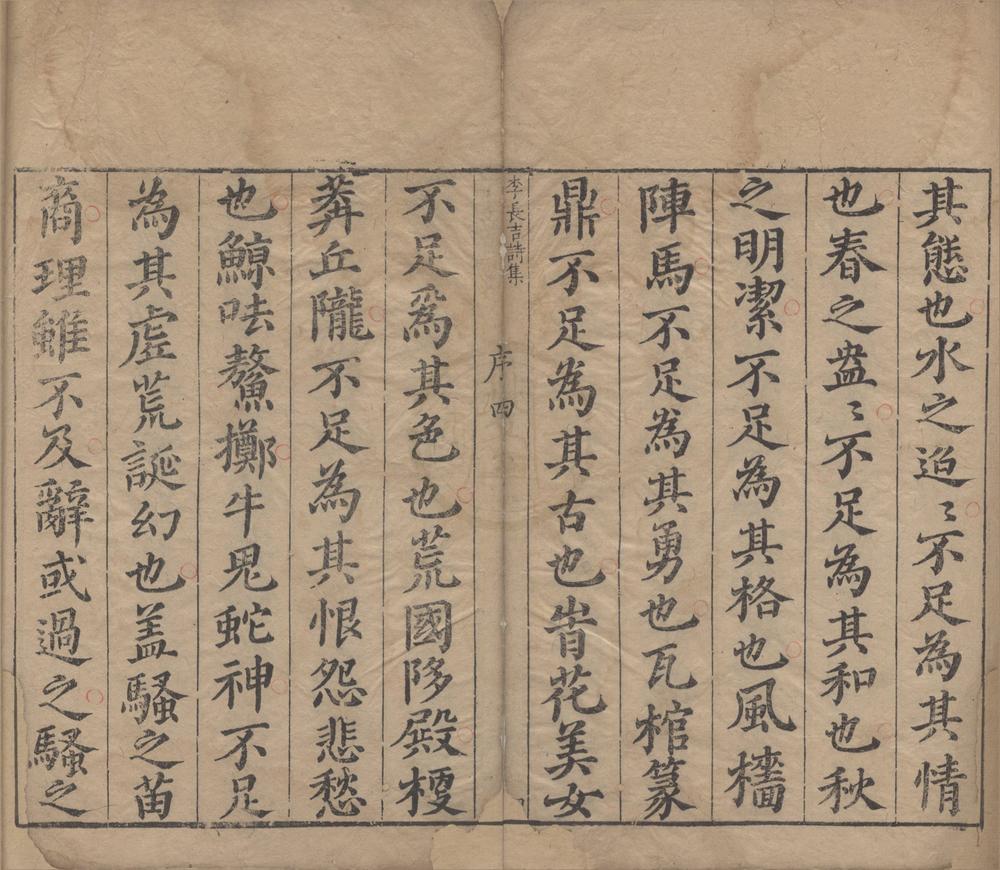 其態也水之迢〻不足為其情
也春之盎〻不足為其和也秋
之明潔不足為其格也風檣
陣馬不足為其勇也瓦棺篆
鼎不足為其古也旹花美女
李長吉詩集
序 四
不足爲其色也荒國陊殿梗
莽丘隴不足為其恨怨悲愁
也鯨呿鰲擲牛鬼蛇神不足
為其虛荒誕幻也盖騷之苗
裔理雖不及辭或過之騷之